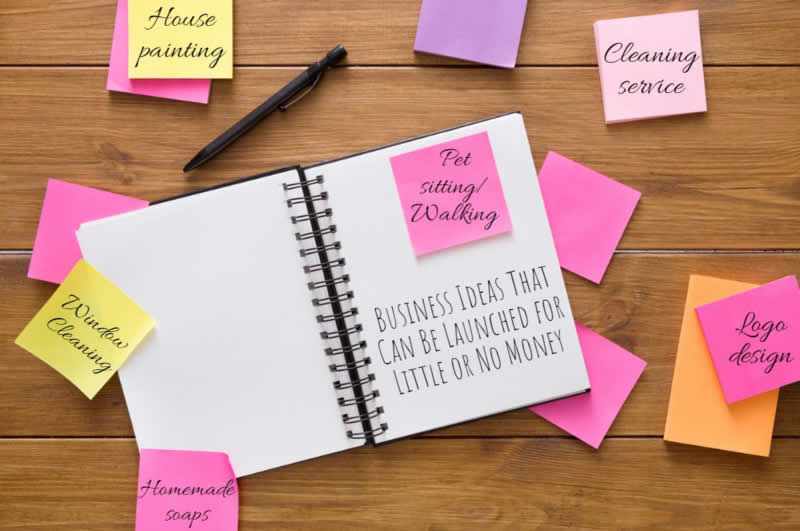 House
painting
Cleaning
service
Pet
sitting/
Walking
Business Ideas That
Can Be Launched for
Little or No Money
Window
Cleaning
Logo
design
Homemade
soaps